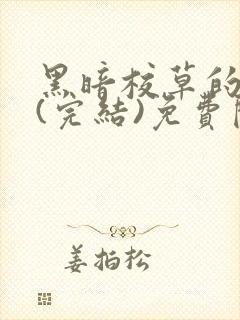 黑暗校草的
(完結)免費
姜拍松